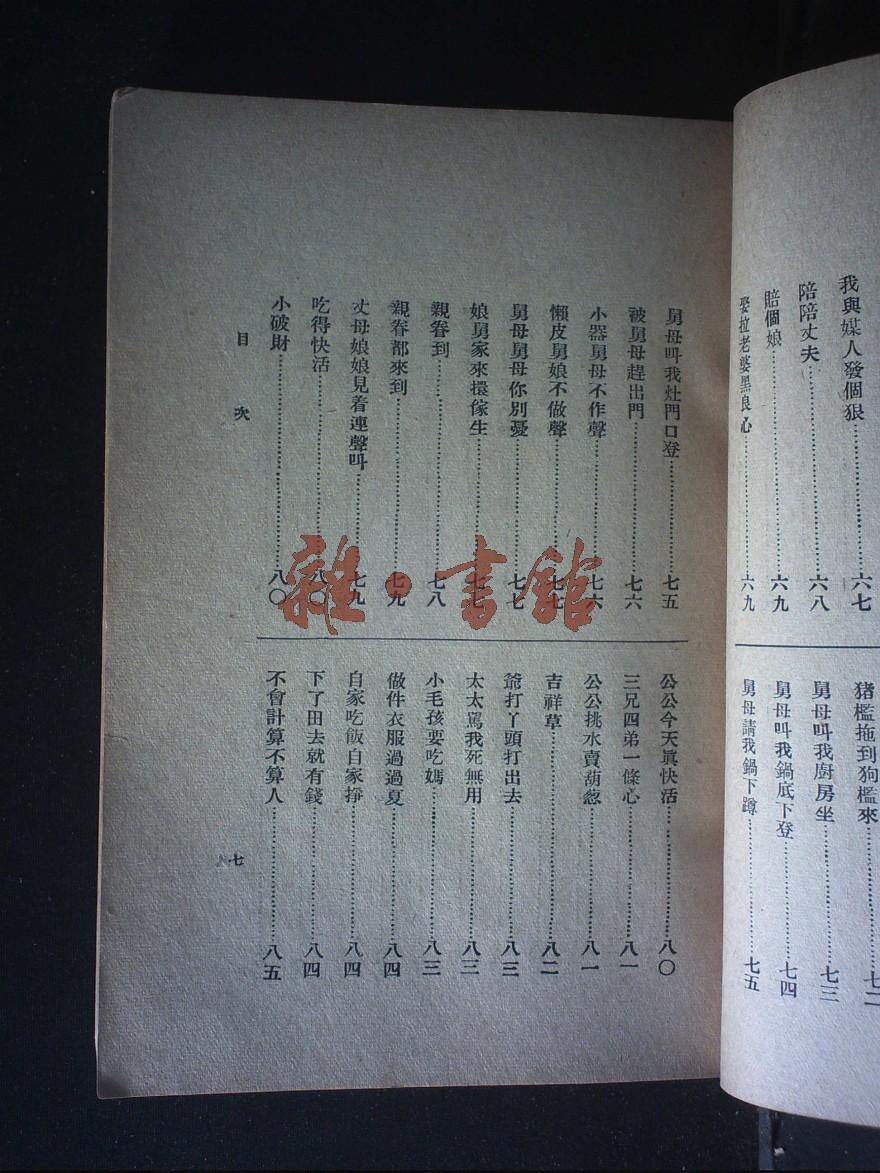 我與媒人發個狠……六七
陪陪丈夫……六八
賠個娘……六九
娶拉老婆黑良心……六九
猪檻拖到狗檻來……七二
舅母叫我廚房坐……七三
舅母叫我鍋底下登……七四
舅母請我鍋下蹲……七五
舅母叫我灶門口登……七五
被舅母趕出門……七六
小器舅母不作聲……七六
懶皮舅娘不做聲……七七
舅母舅母你別憂……七七
娘舅家來還傢生……七七
親眷到……七八
親眷都來到……七九
丈母娘娘見着連聲叫……七九
吃得快活……八〇
小破財……八〇
公公今天眞快活……八〇
三兄四弟一條心……八一
公公挑水賣葫葱……八一
吉祥草……八二
爺打丫頭打出去……八三
太太罵我死無用……八三
小毛孩要吃媽……八三
做件衣服過過夏……八四
自家吃飯自家掙……八四
下了田去就有錢……八四
不會計算不算人……八五
目次
七
雜·書館